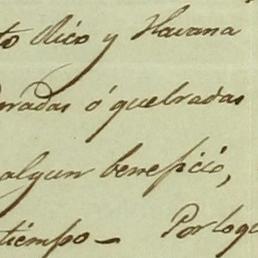 to Rico y Havana
radas ó quebradas
algun beneficio,
tiempo — Por lo q